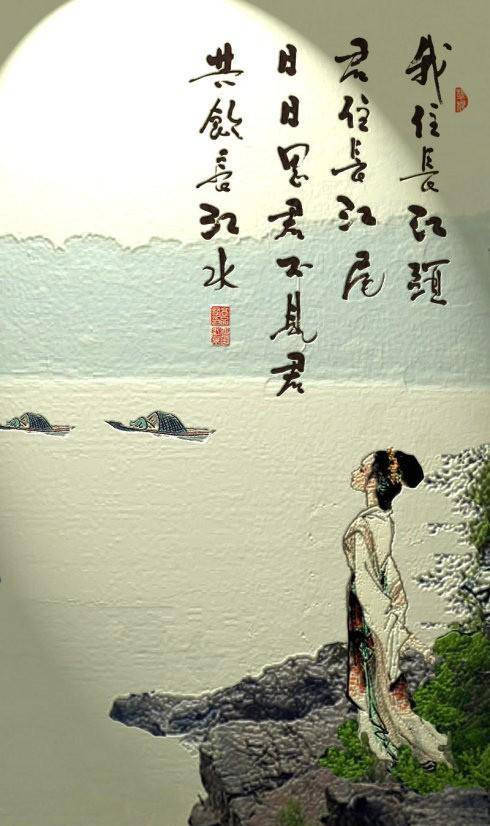 我住長江頭
君住長江尾
日日思君不見君
共飲長江水